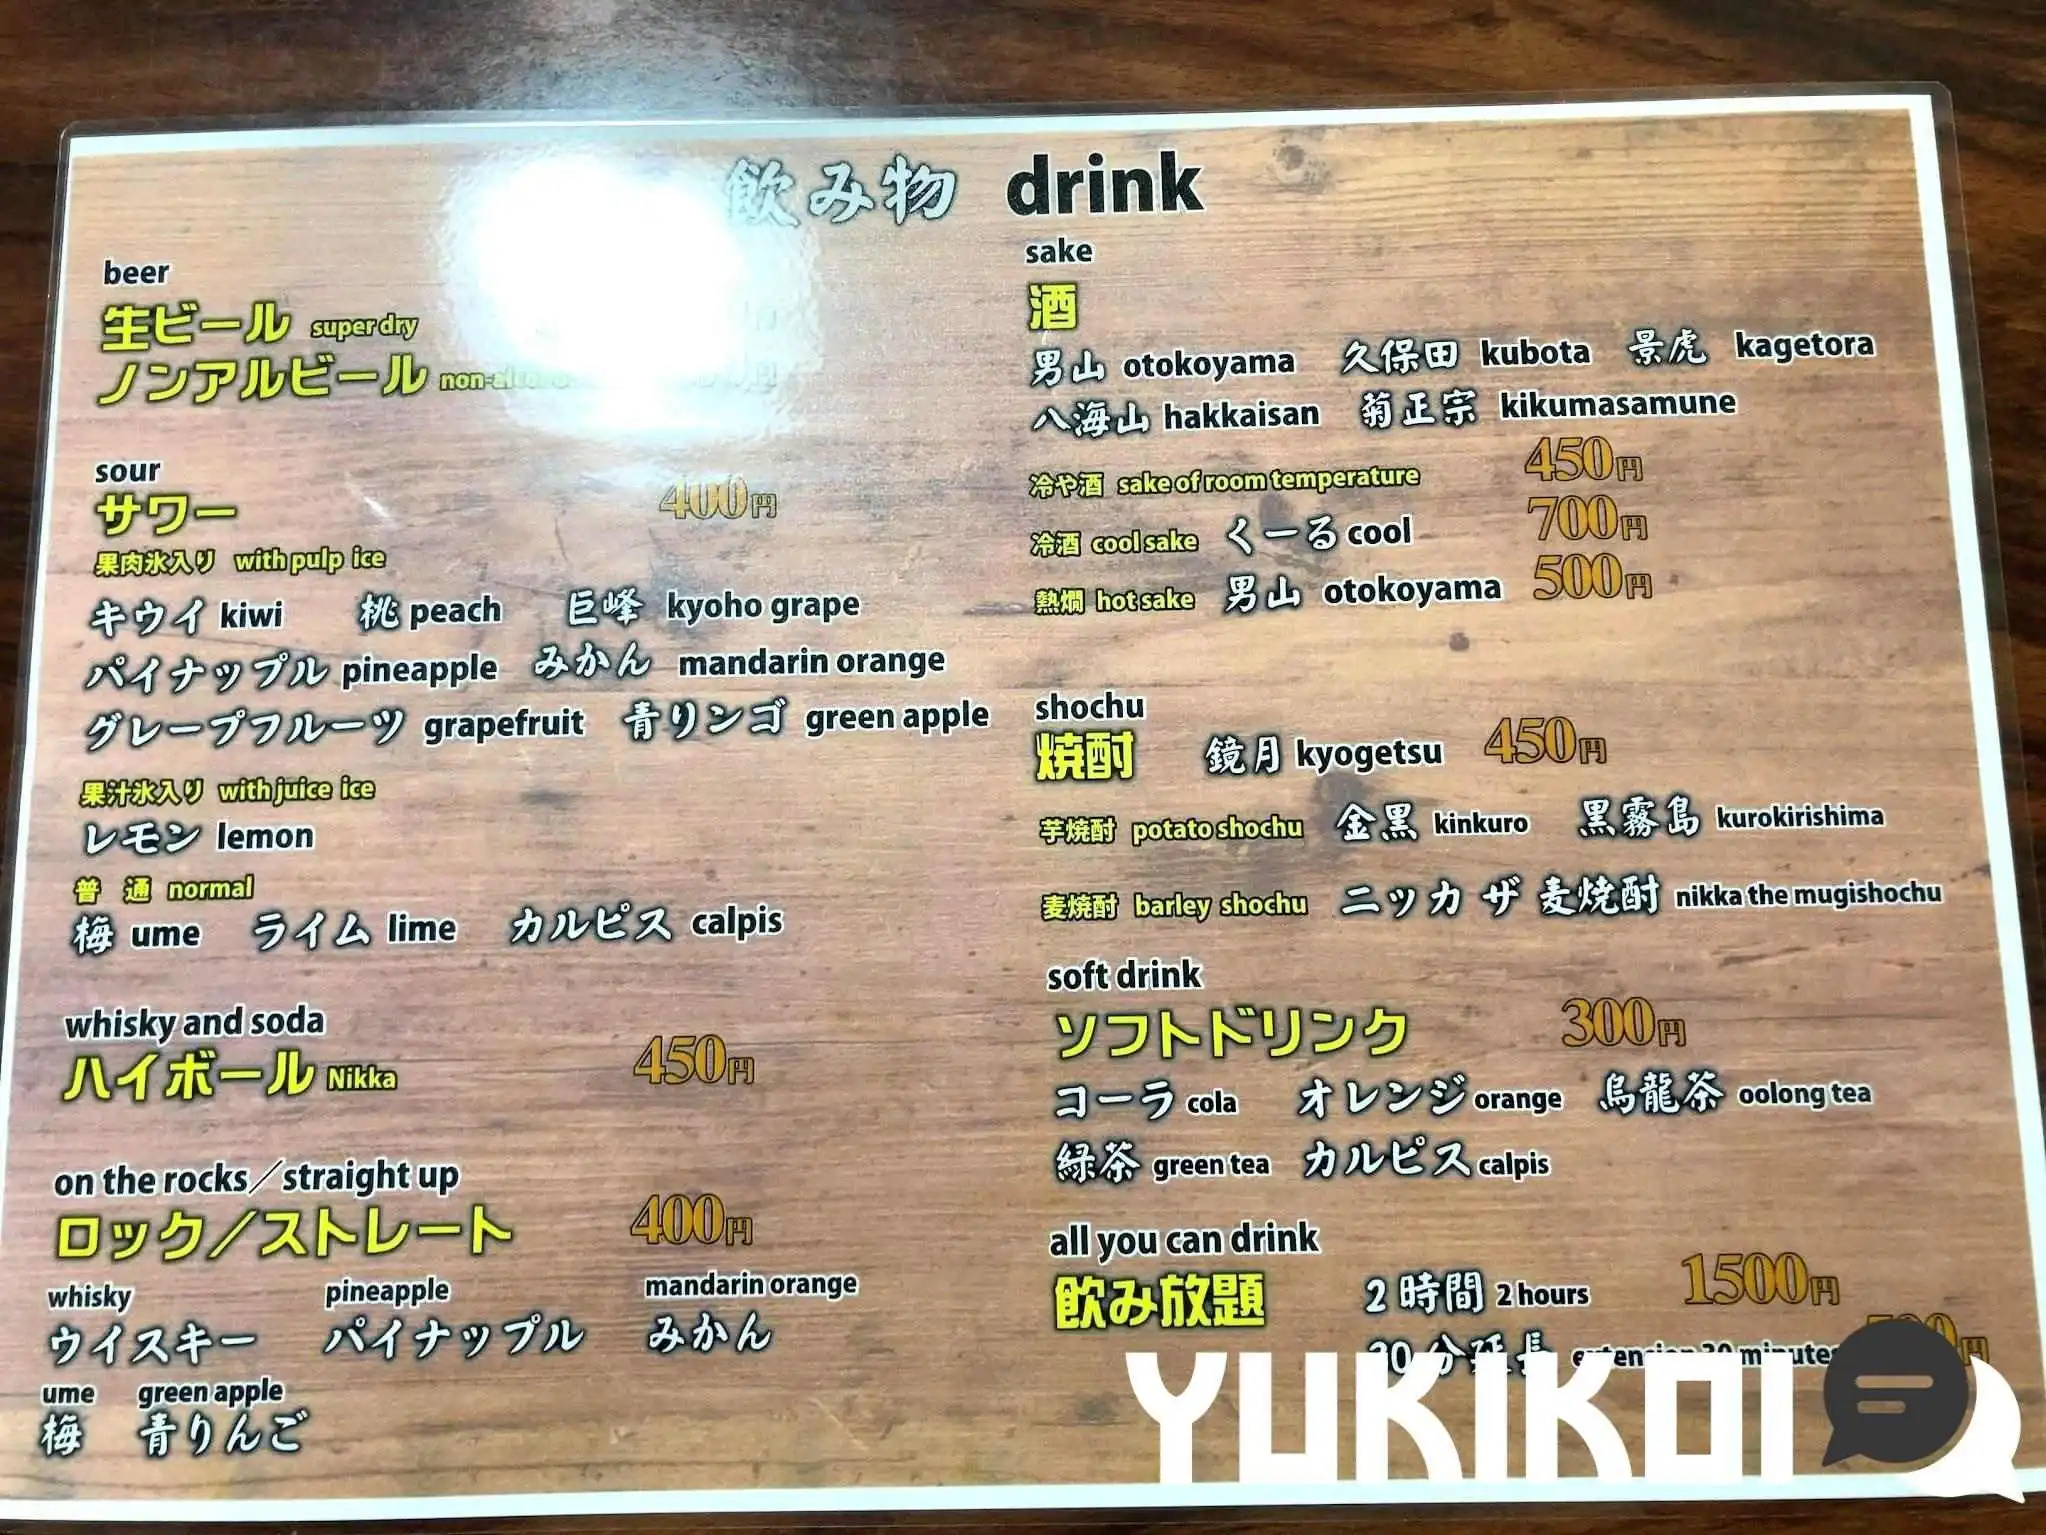 飲み物 drink
beer
生ビール super dry
ノンアルビール
sour
サワー 400円
果肉氷入り with pulp ice
キウイ kiwi 桃 peach 巨峰 kyoho grape
パイナップル pineapple みかん mandarin orange
グレープフルーツ grapefruit 青りンゴ green apple
果汁氷入り with juice ice
レモン lemon
普 通 normal
梅 ume ライム lime カルピス calpis
whisky and soda
ハイボール Nikka 450円
on the rocks／straight up
ロック／ストレート 400円
whisky pineapple mandarin orange
ウイスキー パイナップル みかん
ume green apple
梅 青りんご
sake
酒
男山 otokoyama 久保田 kubota 景虎 kagetora
八海山 hakkaisan 菊正宗 kikumasamune
冷や酒 sake of room temperature 450円
冷酒 cool sake くーる cool 700円
熱燗 hot sake 男山 otokoyama 500円
shochu
焼酎 鏡月 kyogetsu 450円
芋焼酎 potato shochu 金黒 kinkuro 黒霧島 kurokirishima
麦焼酎 barley shochu ニッカ ザ 麦焼酎 nikka the mugishochu
soft drink
ソフトドリンク 300円
コーラ cola オレンジ orange 烏龍茶 oolong tea
緑茶 green tea カルピス calpis
all you can drink
飲み放題 2時間 2 hours 1500円
30分延長 extension 30 minutes
YUKIKOI